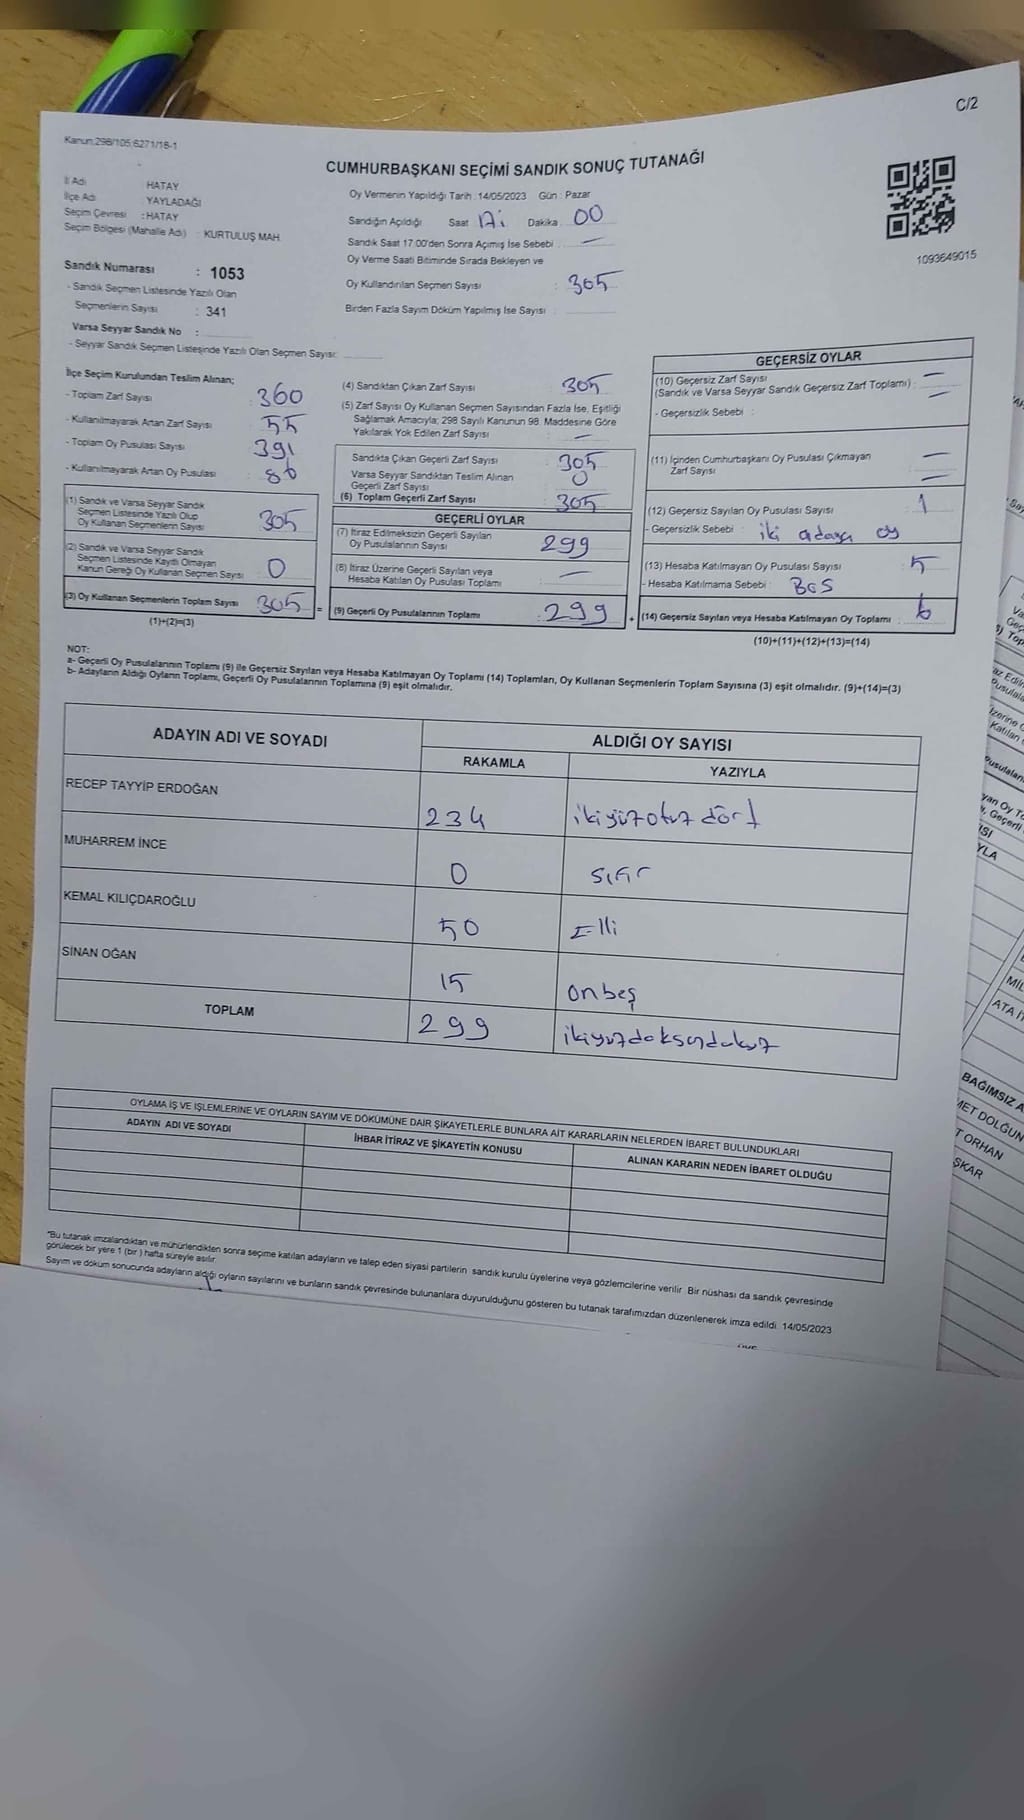 C/2
Kanun:298/105;6271/18-1
CUMHURBAŞKANI SEÇİMİ SANDIK SONUÇ TUTANAĞI
İl Adı : HATAY
İlçe Adı : YAYLADAĞI
Seçim Çevresi : HATAY
Seçim Bölgesi (Mahalle Adı) : KURTULUŞ MAH.
Oy Vermenin Yapıldığı Tarih : 14/05/2023 Gün : Pazar
Sandığın Açıldığı Saat 17: Dakika 00
Sandık Saat 17:00'den Sonra Açılmış İse Sebebi : —
Oy Verme Saati Bitiminde Sırada Bekleyen ve
Oy Kullandırılan Seçmen Sayısı : 305
Birden Fazla Sayım Döküm Yapılmış İse Sayısı :
1093649015
Sandık Numarası : 1053
- Sandık Seçmen Listesinde Yazılı Olan
Seçmenlerin Sayısı : 341
Varsa Seyyar Sandık No :
- Seyyar Sandık Seçmen Listesinde Yazılı Olan Seçmen Sayısı:
İlçe Seçim Kurulundan Teslim Alınan;
- Toplam Zarf Sayısı : 360
- Kullanılmayarak Artan Zarf Sayısı : 55
- Toplam Oy Pusulası Sayısı : 391
- Kullanılmayarak Artan Oy Pusulası : 86
(1) Sandık ve Varsa Seyyar Sandık
Seçmen Listesinde Yazılı Olup
Oy Kullanan Seçmenlerin Sayısı 305
(2) Sandık ve Varsa Seyyar Sandık
Seçmen Listesinde Kayıtlı Olmayan
Kanun Gereği Oy Kullanan Seçmen Sayısı 0
(3) Oy Kullanan Seçmenlerin Toplam Sayısı 305 =
(1)+(2)=(3)
(4) Sandıktan Çıkan Zarf Sayısı : 305
(5) Zarf Sayısı Oy Kullanan Seçmen Sayısından Fazla İse, Eşitliği
Sağlamak Amacıyla; 298 Sayılı Kanunun 98. Maddesine Göre
Yakılarak Yok Edilen Zarf Sayısı : —
Sandıkta Çıkan Geçerli Zarf Sayısı : 305
Varsa Seyyar Sandıktan Teslim Alınan
Geçerli Zarf Sayısı : 0
(6) Toplam Geçerli Zarf Sayısı : 305
GEÇERLİ OYLAR
(7) İtiraz Edilmeksizin Geçerli Sayılan
Oy Pusulalarının Sayısı : 299
(8) İtiraz Üzerine Geçerli Sayılan veya
Hesaba Katılan Oy Pusulası Toplamı : —
(9) Geçerli Oy Pusulalarının Toplamı : 299 +
GEÇERSİZ OYLAR
(10) Geçersiz Zarf Sayısı —
(Sandık ve Varsa Seyyar Sandık Geçersiz Zarf Toplamı) : —
- Geçersizlik Sebebi :
(11) İçinden Cumhurbaşkanı Oy Pusulası Çıkmayan —
Zarf Sayısı : —
(12) Geçersiz Sayılan Oy Pusulası Sayısı : 1
- Geçersizlik Sebebi : iki adaya oy
(13) Hesaba Katılmayan Oy Pusulası Sayısı : 5
- Hesaba Katılmama Sebebi : BoS
(14) Geçersiz Sayılan veya Hesaba Katılmayan Oy Toplamı : 6
(10)+(11)+(12)+(13)=(14)
NOT:
a- Geçerli Oy Pusulalarının Toplamı (9) ile Geçersiz Sayılan veya Hesaba Katılmayan Oy Toplamı (14) Toplamları, Oy Kullanan Seçmenlerin Toplam Sayısına (3) eşit olmalıdır. (9)+(14)=(3)
b- Adayların Aldığı Oyların Toplamı, Geçerli Oy Pusulalarının Toplamına (9) eşit olmalıdır.
ADAYIN ADI VE SOYADI
ALDIĞI OY SAYISI
RAKAMLA YAZIYLA
RECEP TAYYİP ERDOĞAN 234 ikiyüzotuzdört
MUHARREM İNCE 0 sıfır
KEMAL KILIÇDAROĞLU 50 Elli
SİNAN OĞAN 15 onbeş
TOPLAM 299 ikiyüzdoksandokuz
OYLAMA İŞ VE İŞLEMLERİNE VE OYLARIN SAYIM VE DÖKÜMÜNE DAİR ŞİKAYETLERLE BUNLARA AİT KARARLARIN NELERDEN İBARET BULUNDUKLARI
ADAYIN ADI VE SOYADI İHBAR İTİRAZ VE ŞİKAYETİN KONUSU ALINAN KARARIN NEDEN İBARET OLDUĞU
*Bu tutanak imzalandıktan ve mühürlendikten sonra seçime katılan adayların ve talep eden siyasi partilerin sandık kurulu üyelerine veya gözlemcilerine verilir. Bir nüshası da sandık çevresinde
görülecek bir yere 1 (bir ) hafta süreyle asılır.
Sayım ve döküm sonucunda adayların aldığı oyların sayılarını ve bunların sandık çevresinde bulunanlara duyurulduğunu gösteren bu tutanak tarafımızdan düzenlenerek imza edildi. 14/05/2023
BAĞIMSIZ A
MET DOLĞUN
T ORHAN
ŞKAR